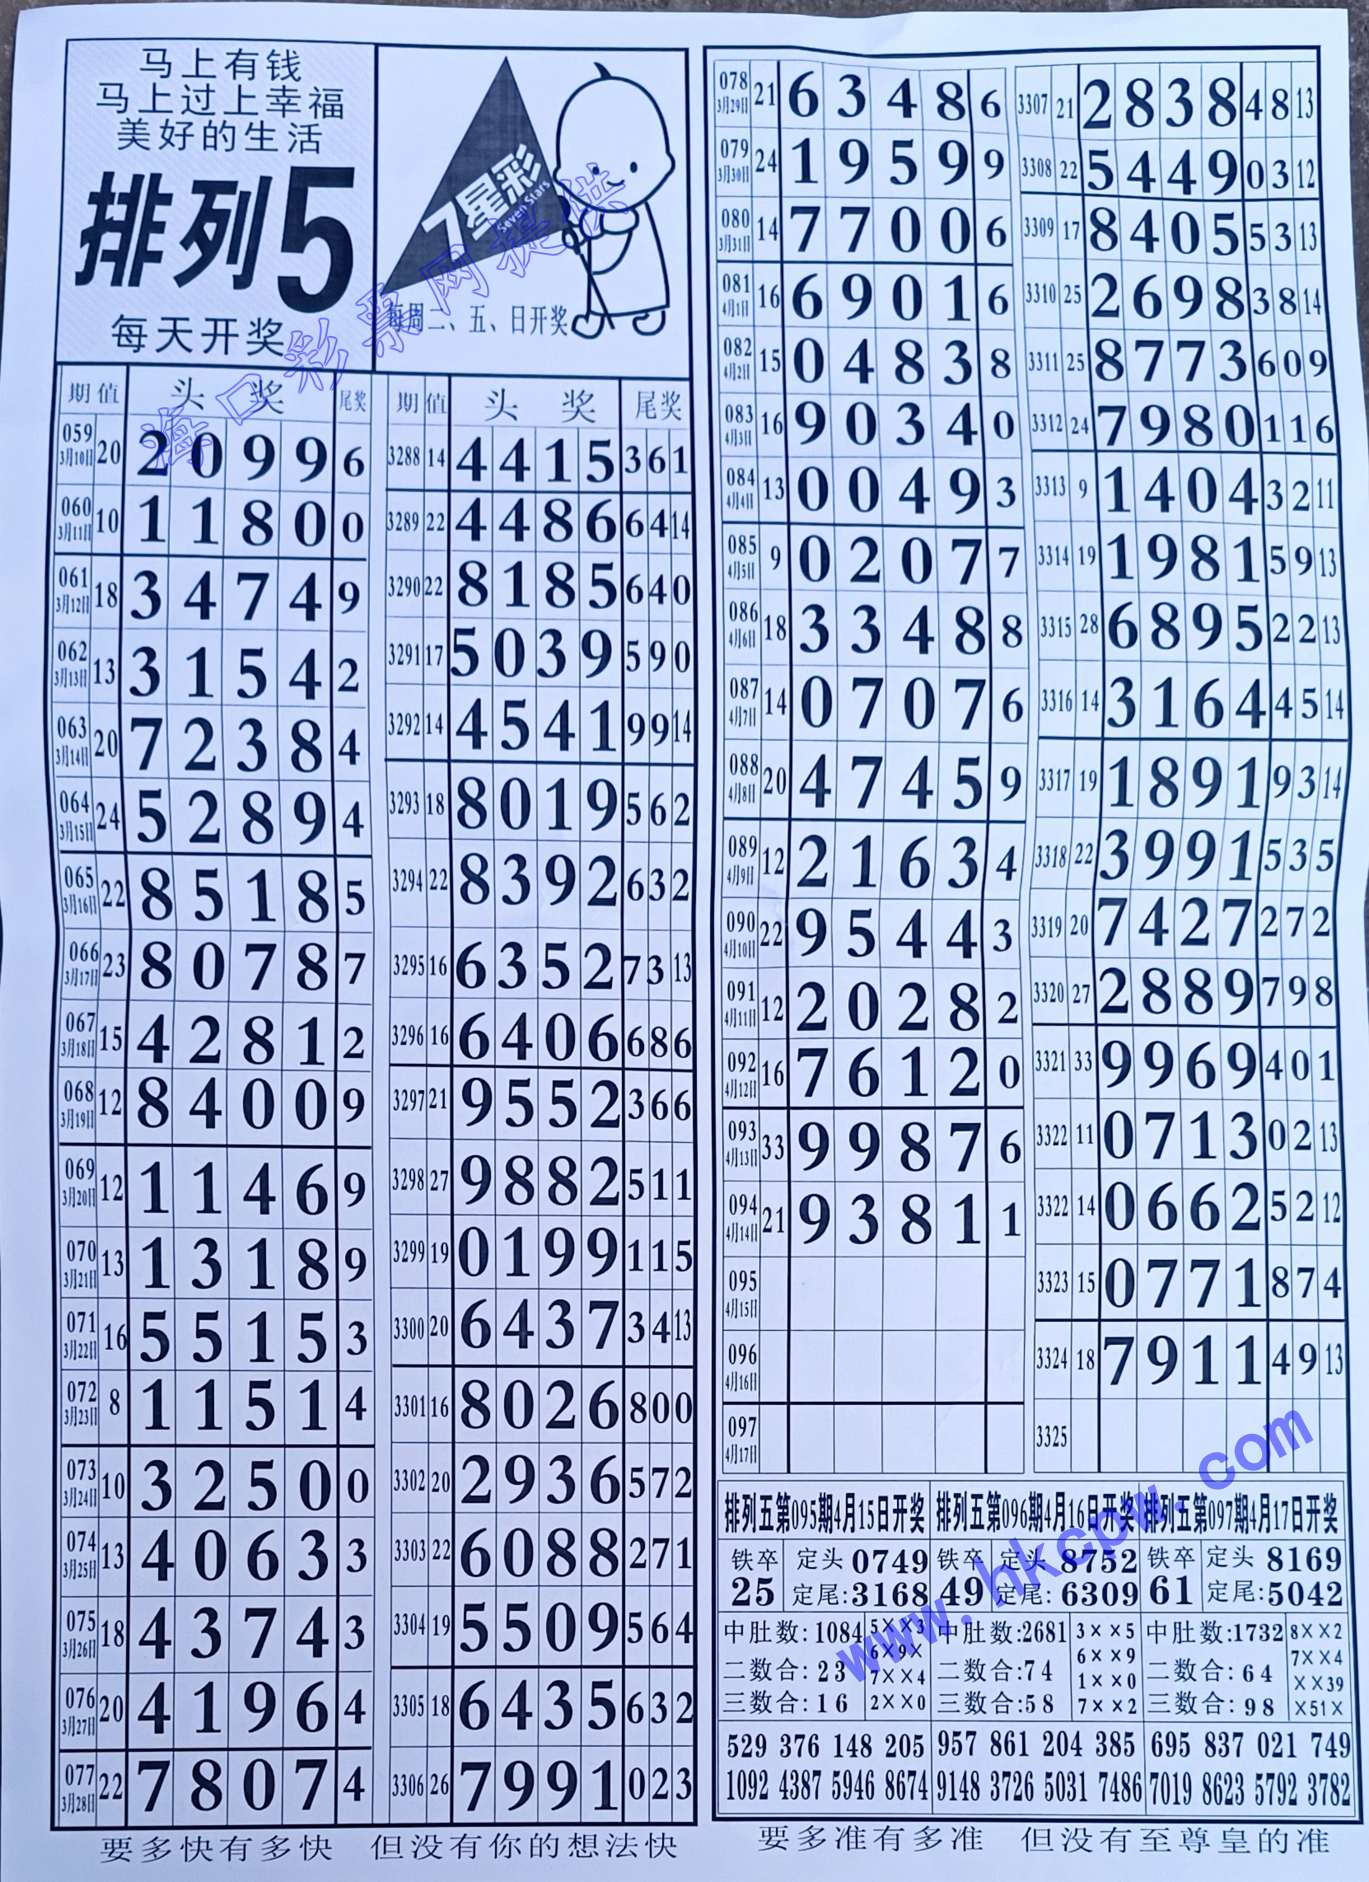 马上有钱
马上过上幸福
美好的生活
排列5
每天开奖
7星彩
Seven Stars
每周二、五、日开奖
海口彩票网提供
期 值 头 奖 尾奖
059 3月10日 20 2 0 9 9 6
060 3月11日 10 1 1 8 0 0
061 3月12日 18 3 4 7 4 9
062 3月13日 13 3 1 5 4 2
063 3月14日 20 7 2 3 8 4
064 3月15日 24 5 2 8 9 4
065 3月16日 22 8 5 1 8 5
066 3月17日 23 8 0 7 8 7
067 3月18日 15 4 2 8 1 2
068 3月19日 12 8 4 0 0 9
069 3月20日 12 1 1 4 6 9
070 3月21日 13 1 3 1 8 9
071 3月22日 16 5 5 1 5 3
072 3月23日 8 1 1 5 1 4
073 3月24日 10 3 2 5 0 0
074 3月25日 13 4 0 6 3 3
075 3月26日 18 4 3 7 4 3
076 3月27日 20 4 1 9 6 4
077 3月28日 22 7 8 0 7 4
期 值 头 奖 尾奖
3288 14 4 4 1 5 3 6 1
3289 22 4 4 8 6 6 4 14
3290 22 8 1 8 5 6 4 0
3291 17 5 0 3 9 5 9 0
3292 14 4 5 4 1 9 9 14
3293 18 8 0 1 9 5 6 2
3294 22 8 3 9 2 6 3 2
3295 16 6 3 5 2 7 3 13
3296 16 6 4 0 6 6 8 6
3297 21 9 5 5 2 3 6 6
3298 27 9 8 8 2 5 1 1
3299 19 0 1 9 9 1 1 5
3300 20 6 4 3 7 3 4 13
3301 16 8 0 2 6 8 0 0
3302 20 2 9 3 6 5 7 2
3303 22 6 0 8 8 2 7 1
3304 19 5 5 0 9 5 6 4
3305 18 6 4 3 5 6 3 2
3306 26 7 9 9 1 0 2 3
要多快有多快 但没有你的想法快
078 3月29日 21 6 3 4 8 6
079 3月30日 24 1 9 5 9 9
080 3月31日 14 7 7 0 0 6
081 4月1日 16 6 9 0 1 6
082 4月2日 15 0 4 8 3 8
083 4月3日 16 9 0 3 4 0
084 4月4日 13 0 0 4 9 3
085 4月5日 9 0 2 0 7 7
086 4月6日 18 3 3 4 8 8
087 4月7日 14 0 7 0 7 6
088 4月8日 20 4 7 4 5 9
089 4月9日 12 2 1 6 3 4
090 4月10日 22 9 5 4 4 3
091 4月11日 12 2 0 2 8 2
092 4月12日 16 7 6 1 2 0
093 4月13日 33 9 9 8 7 6
094 4月14日 21 9 3 8 1 1
095 4月15日
096 4月16日
097 4月17日
3307 21 2 8 3 8 4 8 13
3308 22 5 4 4 9 0 3 12
3309 17 8 4 0 5 5 3 13
3310 25 2 6 9 8 3 8 14
3311 25 8 7 7 3 6 0 9
3312 24 7 9 8 0 1 1 6
3313 9 1 4 0 4 3 2 11
3314 19 1 9 8 1 5 9 13
3315 28 6 8 9 5 2 2 13
3316 14 3 1 6 4 4 5 14
3317 19 1 8 9 1 9 3 14
3318 22 3 9 9 1 5 3 5
3319 20 7 4 2 7 2 7 2
3320 27 2 8 8 9 7 9 8
3321 33 9 9 6 9 4 0 1
3322 11 0 7 1 3 0 2 13
3322 14 0 6 6 2 5 2 12
3323 15 0 7 7 1 8 7 4
3324 18 7 9 1 1 4 9 13
3325
排列五第095期4月15日开奖
铁卒 定头 0749
25 定尾:3168
中肚数:1084 5××3
6×9×
二数合:23 7××4
三数合:16 2××0
529 376 148 205
1092 4387 5946 8674
排列五第096期4月16日开奖
铁卒 定头 8752
49 定尾: 6309
中肚数:2681 3××5
6××9
二数合:74 1××0
三数合:58 7××2
957 861 204 385
9148 3726 5031 7486
排列五第097期4月17日开奖
铁卒 定头 8169
61 定尾:5042
中肚数:1732 8××2
7××4
二数合:64 ××39
三数合:98 ×51×
695 837 021 749
7019 8623 5792 3782
要多准有多准 但没有至尊皇的准
www.hkcpw.com